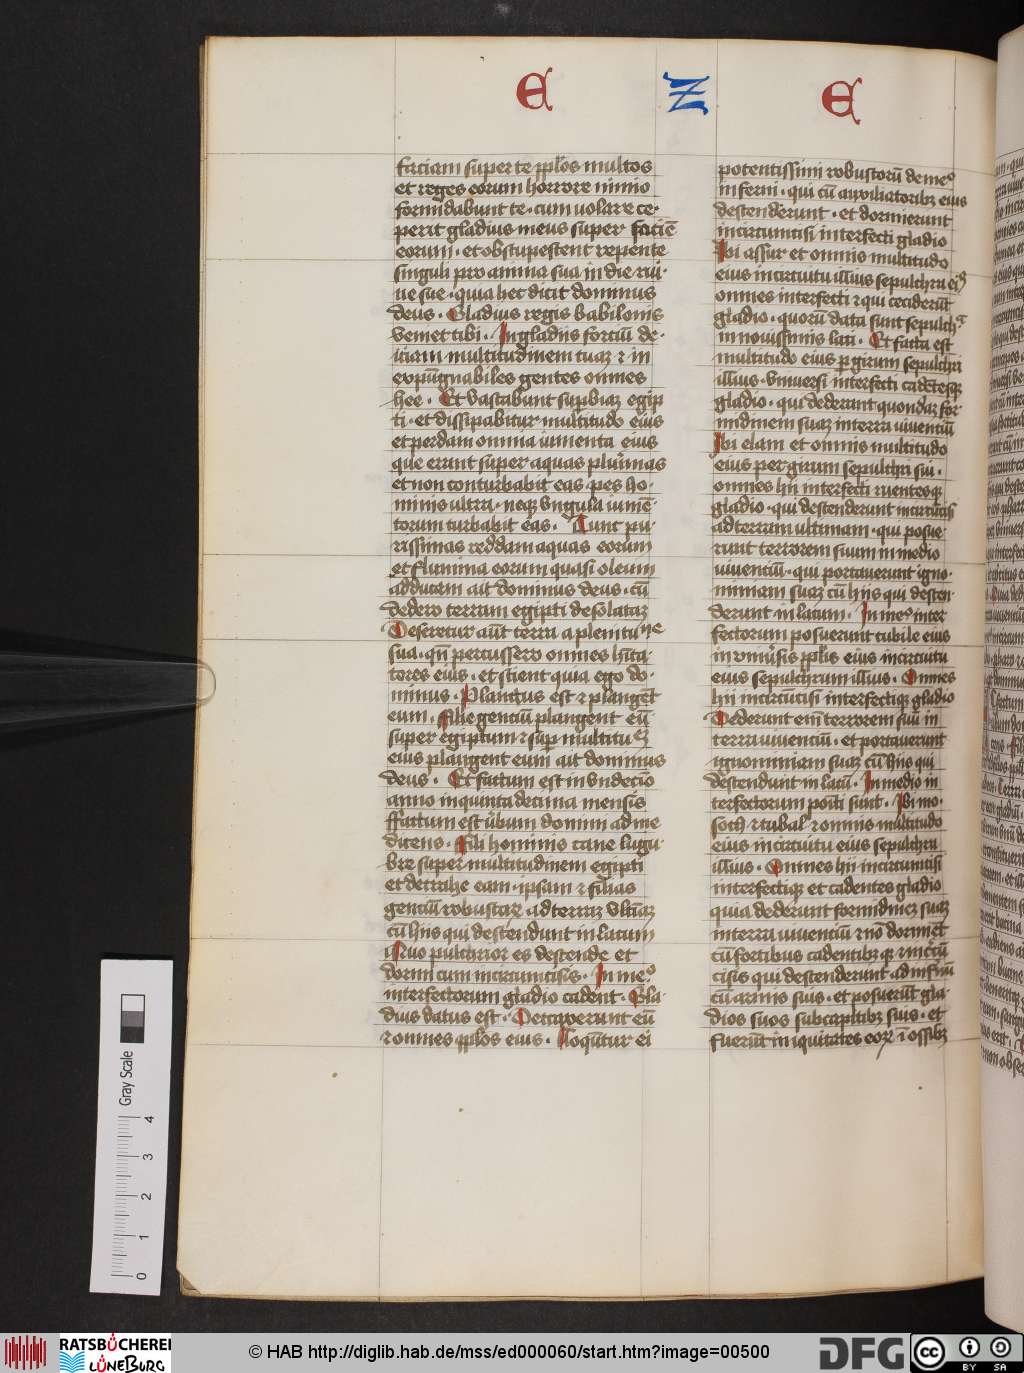 E Z E
faciam super te pplos multos
et reges eorum horrore nimio
formidabunt te · cum uolare ce·
perit gladius meus super faciē
eorum · et obstupescent repente
singuli pro anima sua in die rui·
ne sue · quia hec dicit dominus
deus · Gladius regis babilonis
veniet tibi · In gladiis fortiū de·
iciam multitudinem tuaꝫ ⁊ in
expūgnabiles gentes omnes
hee · Et vastabunt supbiaꝫ egip
ti · et dissipabitur multitudo eius
et perdam omnia iumenta eius
que erant super aquas plurimas
et non conturbabit eas pes ho·
minis ultra · neqꝫ vngula iumē·
torum turbabit eas · Tunc pu·
rissimas reddam aquas eorum
et flumina eorum quasi oleum
adducam ait dominus deus · cū
dedero terram egipti desolataꝫ
Deseretur aūt terra a plenitune
sua · qn̄ percussero omnes hīta·
tores eius · et scient quia ego do·
minus · Planctus est ⁊ plangēt
eum · filie gentiū plangent eū
super egiptum ⁊ sup multitu eꝫ
eius plangent eum ait dominus
deus · Et factum est in vndecīo
anno in quinta decima mensis
ffactum est ūbum domini ad me
dicens · Fili hominis cane lugu·
bre super multitudinem egipti
et detrahe eam · ipsam ⁊ filias
gentiū robustaꝝ ad terraꝫ vltīaꝫ
cū hiis qui descendunt in lacum
Quo pulchrior es descende et
dormi cum incircumcisis · In me°
interfectorum gladio cadent · Gla·
dius datus est · Detraxerunt eū
⁊ omnes pplos eius · Loquūtur ei
potentissimi robustorū de me°
inferni · qui cū auxiliatoribꝫ eius
descenderunt · et dormierunt
incircumcisi interfecti gladio
Ibi assur et omnis multitudo
eius in circuitu illius sepulchra ei
omnes interfecti ⁊ qui ceciderūt
gladio · quorū data sunt sepulchᵃ
in nouissimis laci · Et facta est
multitudo eius p girum sepulchri
illius · vniuersi interfecti cadētesqꝫ
gladio · qui dederant quondaꝫ for
midinem suaꝫ in terra uiuentiū
Ibi elam et omnis multitudo
eius per girum sepulchri sui ·
omnes hii interfecti ruentesqꝫ
gladio · qui descenderunt incircūcisi
ad terram ultimam · qui posue·
runt terrorem suum in medio
uiuentiū · qui portauerunt igno·
miniam suaꝫ cū hiis qui descen·
derunt in lacum · In me° inter
fectorum posuerunt cubile eius
in vniūsis pplis eius in circuitu
eius sepulchrum illius · Omnes
hii incircūcisi interfectiqꝫ gladio
Dederunt em̄ terrorem suū in
terra uiuentiū · et portauerunt
ignominiam suaꝫ cū hiis qui
descendunt in lacū · In medio in
terfectorum positi sunt · Ibi mo·
soch ⁊ tubal ⁊ omnis multitudo
eius in circuitu eius sepulchra
illius · Omnes hii incircumcisi
interfectiqꝫ et cadentes gladio
quia dederunt formidineꝫ suaꝫ
in terra uiuentiū ⁊ nō dormiēt
cū fortibus cadentibꝫ qꝫ ⁊ incircū
cisis qui descenderunt ad infnū
cū armis suis · et posuerūt gla·
dios suos sub capitibꝫ suis · et
fuerūt iniquitates eoꝝ ī ossibꝫ
Gray Scale
0 1 2 3 4
RATSBÜCHEREI
LÜNEBURG
© HAB http://diglib.hab.de/mss/ed000060/start.htm?image=00500
DFG
cc BY SA